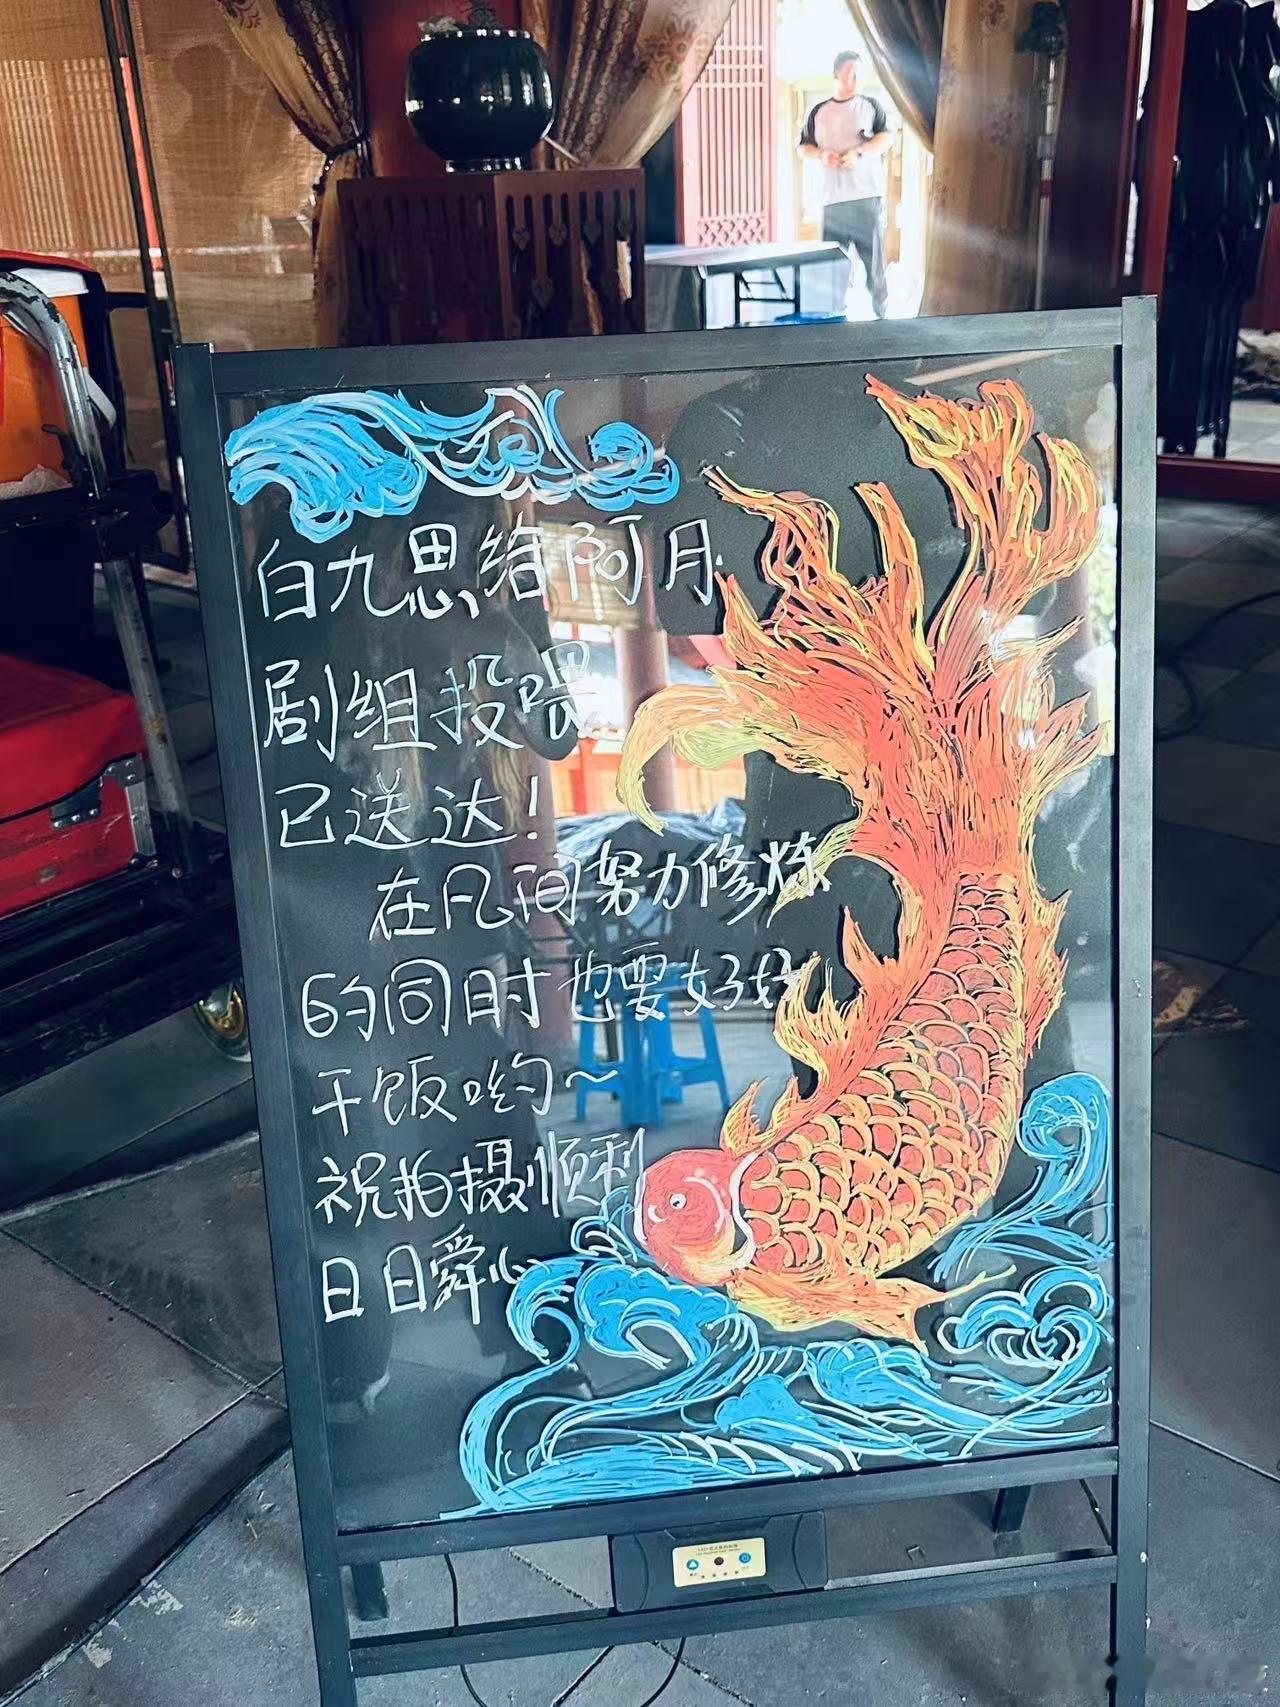 白九思给阿月
剧组投喂
已送达！
在凡间努力修炼
的同时也要好好
干饭哟~
祝拍摄顺利
日日舜心